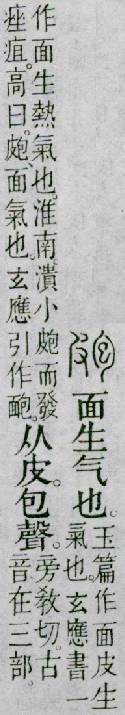 皰 面生气也。玉篇作面皮生
氣也。玄應書一
作面生熱氣也。淮南潰小皰而發
痤疽。高曰。皰、面氣也。玄應引作靤。
从皮。包聲。旁敎切。古
音在三部。